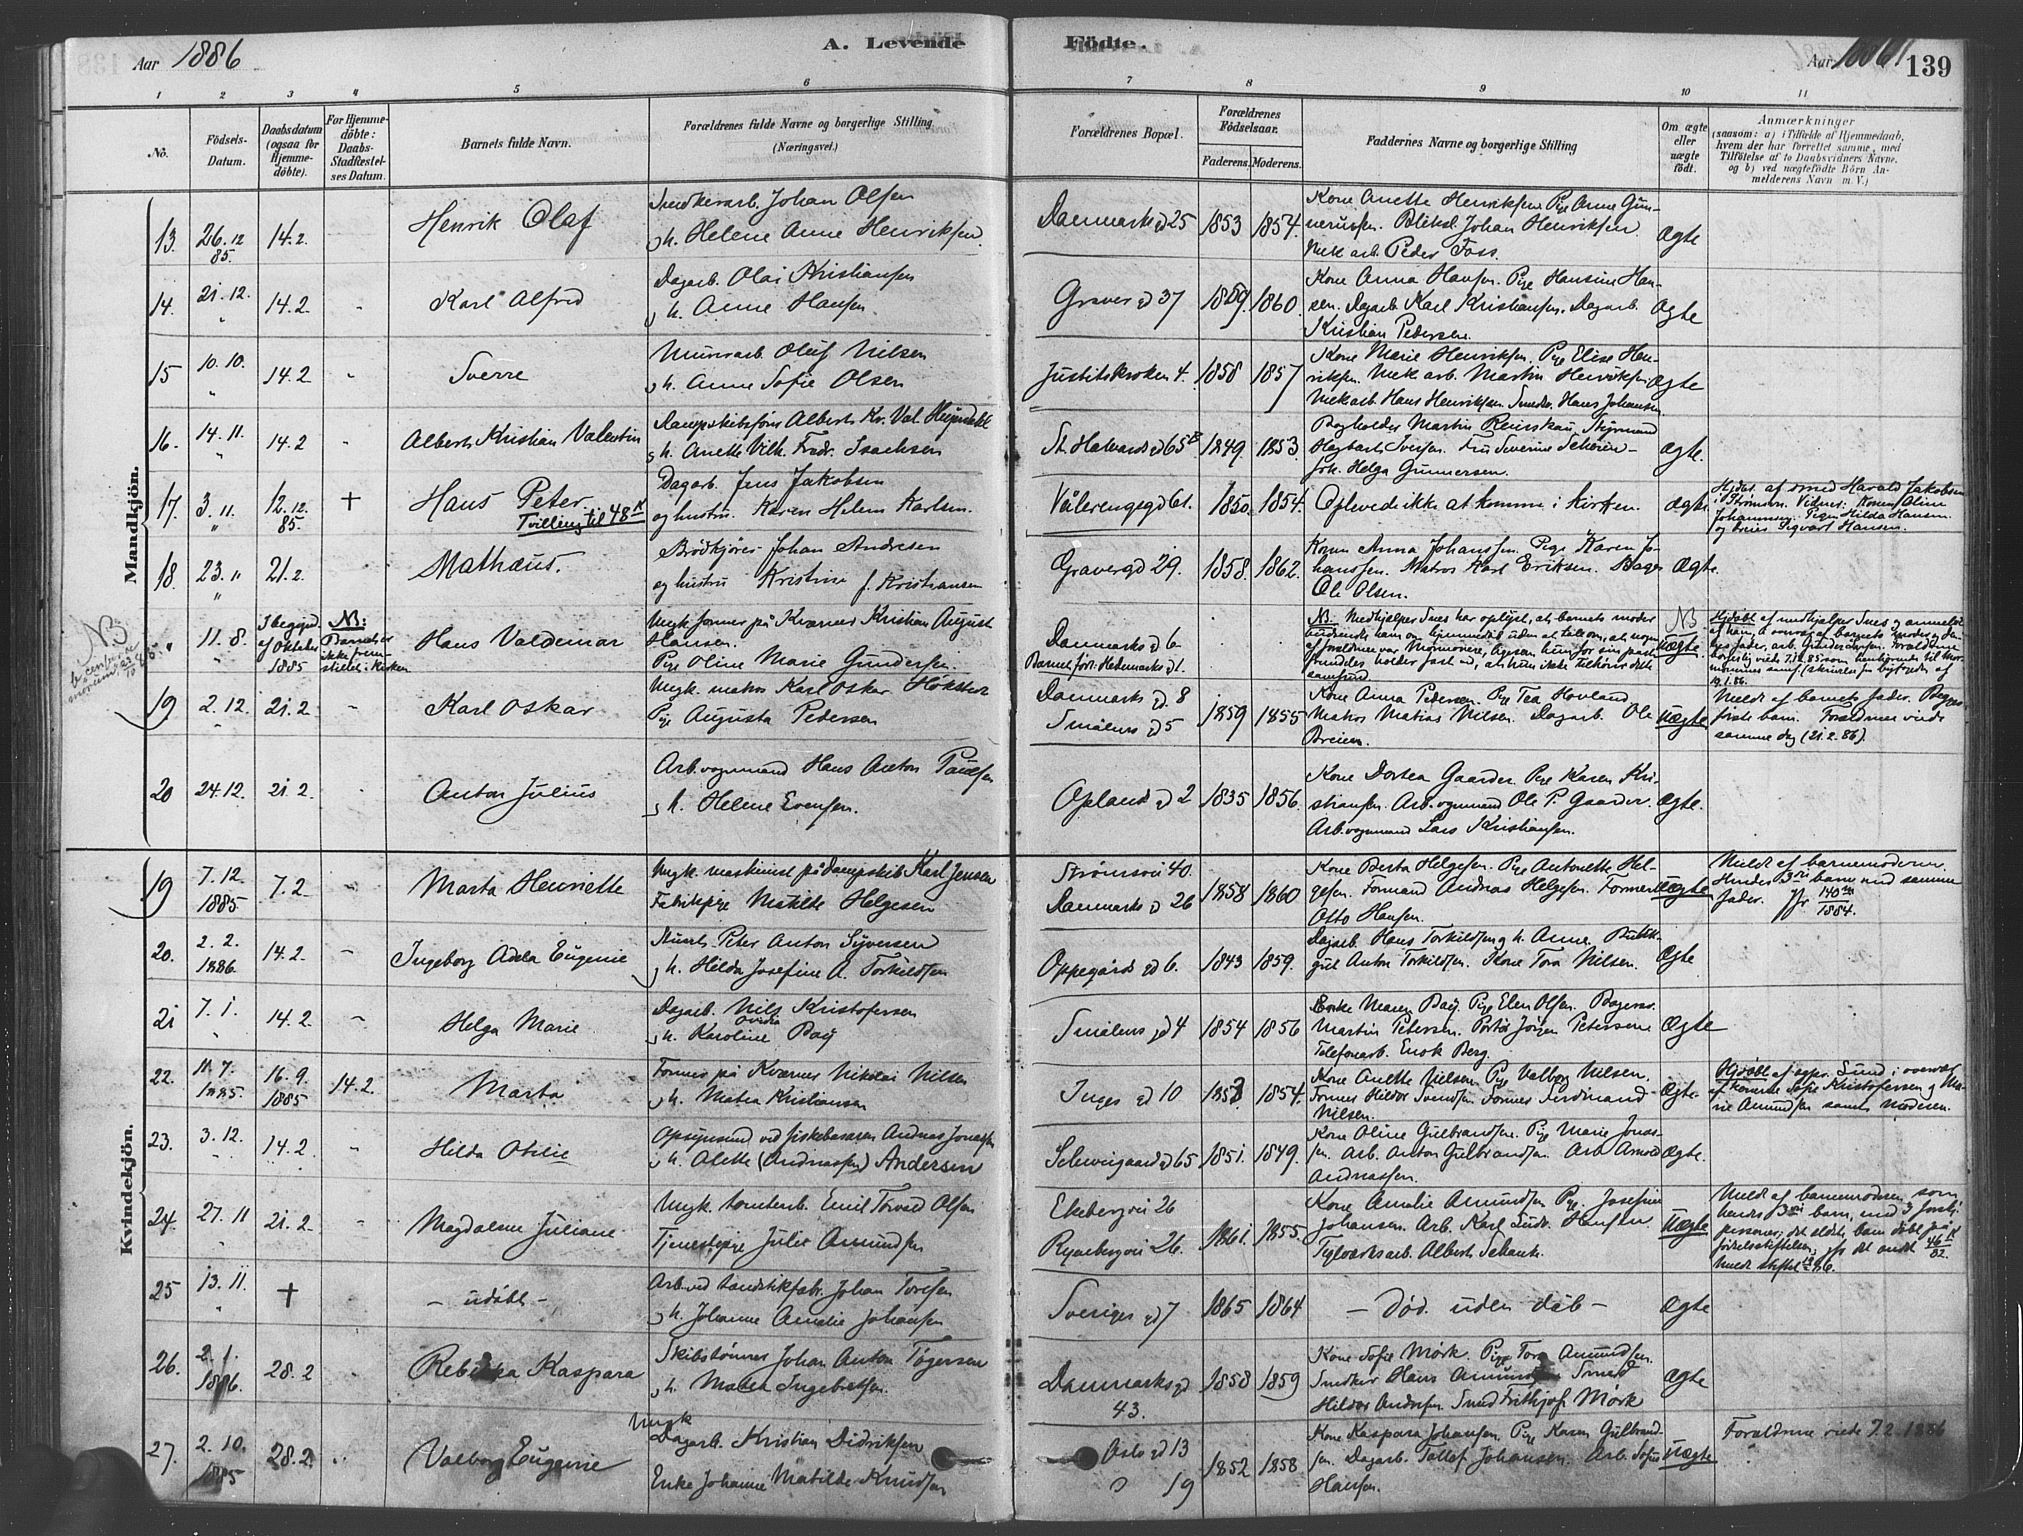 Aar 1886
A. Levende Födte.
Aar 1886
139
1 2 3 4 5 6 7 8 9 10 11
No.
Födsels-Datum.
Daabsdatum (ogsaa for Hjemme-döbte).
For Hjemme-döbte: Daabs-Stadfæstel-ses Datum.
Barnets fulde Navn.
Forældrenes fulde Navne og borgerlige Stilling (Næringsvei.)
Forældrenes Bopæl.
Forældrenes Födselsaar.
Faderens. Moderens.
Faddernes Navne og borgerlige Stilling
Om ægte eller uægte födt.
Anmærkninger
(saasom: a) i Tilfælde af Hjemmedaab,
hvem der har forrettet samme, med
Tilföielse af to Daabsvidners Navne.
og b) ved uægtefödte Börn An-
melderens Navn m. V.)
Mandkjön.
13. 26.12 85. 14.2. Henrik Olaf
Snedkerarb. Johan Olsen
og h. Helene Anne Henriksen.
Danmarksgd 25 1853 1854.
Kone Anette Henriksen. Pige Anne Gun-
nerussen. Bliksl. Johan Henriksen.
Mek arb. Peder Foss.
Ægte
14. 21.12. " 14.2 - Karl Alfred
Dagarb. Olai Kristiansen
og h. Anne Hansen.
Gravergd 37 1859. 1860.
Kone Anna Hansen. Pige Hansine Han-
sen. Dagarb. Karl Kristiansen. Dagarb.
Kristian Pedersen.
Ægte
15 10.10. " 14.2 - Sverre
Murerarb. Oluf Nilsen
og h. Anne Sofie Olsen
Justitskroken 4. 1858 1857
Kone Marie Henriksen. Pige Elise Hen-
riksen. Mek arb. Martin Henriksen.
Mek arb. Hans Henriksen. Smedsv. Hans Johansen
Ægte
16. 14.11. " 14.2 Albert Kristian Valentin
Dampskibsförer Albert Kr. Val.
og h. Anette Vilh. Fredr. Isachsen
St. Halvardsgd 65B 1849. 1853.
Bogholder Martin Reinskau. Styrmand
Hagbart Iversen. Fru Severine
Frk. Helga Gunnersen.
Ægte.
17. 3.11. " 12.12. 85. + Hans Peter.
Tvilling til 48 K
Dagarb. Jens Jakobsen
og hustru Karen Helene Karlsen.
Vålerengegd 61. 1850. 1854.
Oplevede ikke at komme i kirken.
Ægte.
Hjdøbt af smed Harald Jakobsen
i Strömsv. Vidner: Konen Oline
Johannesen. Pigen Hilda Hansen
og Sigvart Hansen.
18 23. " 21.2. - Mathæus.
Brödkjörer Johan Andresen
og hustru Kristine f. Kristiansen
Gravergd 29. 1858. 1862.
Konen Anna Johanssen. Pige Karen Jo-
hanssen. Matros Karl Eriksen. Bager
Ole Olsen.
Ægte.
NB
" 11.8. I begynd. af Oktober 1885
NB: Barnet er ikke frem-stillet i kirken
Hans Valdemar
Ungk. former på Kværner Kristian August
Hansen.
Pige Oline Marie Gundersen.
Danmarksgd 6
Barnet för: Hedemarksgd 1.
NB. Medhjelper Snes har oplyst, at barnets moder
NB
Uægte.
Hjdøbt af medhjelper Snes og anmeldt
19 2.12. " 21.2 - Karl Oskar
Ungk. matros Karl Oskar
Pige Augusta Pedersen
Danmarksgd 8
Smålensgd 5
1859 1855
Kone Anna Pedersen. Pige Tea Hovland
Matros Matias Nilsen. Dagarb. Ole
Breien.
Uægte
Meldt af barnets fader. Begges
förste barn. Forældrene viede
samme dag (21.2.86).
20 24.12. 21.2. - Anton Julius
Arb. vognmand Hans Anton Paulsen
og h. Helene Evensen.
Oplandsgd 2 1835 1856.
Kone Dortea Gaarder. Pige Karen Kri-
stiansen. Arb. vognmand Ole P. Gaarder.
Arb. vognmand Lars Kristiansen.
Ægte.
Kvindekjön.
19 7.12 1885 7.2 - Marta Henriette
Ungk. maskinist på dampskib Karl Jensen
Fabrikpige Matilde Helgesen
Strömsvei 40.
Danmarksgd 26
1858 1860
Kone Berta Helgesen. Pige Antonette Hel-
gesen. Formand Andreas Helgesen. Former
Otto Hansen.
Uægte
Meldt af barnemoderen.
Hendes 3die barn med samme
fader. Jfr 140 K 1884.
20. 2.2. 1886. 14.2 - Ingeborg Adela Eugenie
Peter Anton Syversen
og h. Hilda Josefine A. Torkildsen
Oppegårdsgd 6. 1843 1859.
Dagarb. Hans Torkildsen og h. Anne. Butik-
gut Anton Torkildsen. Kone Tora Nilsen.
Ægte
21 7.1. " 14.2. - Helga Marie
Dagarb. Nils Kristofersen
og h. Karoline Ovidia Bay
Smålensgd 4 1854 1856
Enke Maren Bay. Pige Elen Olsen. Bagersv.
Martin Petersen. Portör Jörgen Petersen
Telefonarb. Enok Berg.
Ægte
22. 11.7. 1885. 16.9. 1885 14.2. Marta
Former på Kværner Nikolai Nilsen
og h. Matea Kristiansen
Ingesgd 10 1854.
Kone Anette Nielsen. Pige Valborg Nilsen.
Former Hildor Svendsen. Former Ferdinand
Nilsen.
Ægte.
Hjdøbt af Lund i overvær
af konerne Sofie Kristofersen og Ma-
rie Amundsen samt Moderen.
23. 3.12. " 14.2. - Hilda Otilie
Opsynsmd. ved fiskebasaren Andreas Jonassen
og h. Alette (Andreassen) Andersen
Schweigaardsgd 65 1851. 1849.
Kone Oline Gulbrandsen. Pige Marie Jonas-
sen. Arb. Anton Gulbrandsen. Arb.
Andreassen.
Ægte.
24. 27.11 " 21.2. - Magdalene Juliane
Ungk. tomtearb. Emil Torvald Olsen
Tjenestepige Julie Amundsen
Ekebergvei 26
Ryenbergvei 26.
1861. 1855.
Kone Amalie Amundsen Pige Josefine
Johansen. Arb. Karl Ludv. Hansen.
Teglværksarb. Albert Schenk.
Uægte
Meldt af barnemoderen som
hendes 3die barn, med 3 forskj.
personer, det ældste barn döbt på
födselsstiftelsen, jfr det andet 46 K 82.
25 13.11. " + - udöbt -
Arb. ved tændstikfabr. Johan Toresen
og h. Johanne Amalie Johansen
Sverigesgd 7 1865 1864
- död uden dåb -
Ægte
26. 2.1. 1886. 28.2 Rebekka Kaspara
Skibstömmer Johan Anton Tögersen
og h. Matea Ingebretsen.
Danmarksgd 43. 1858 1859
Kone Sofie Mörk. Pige Tora Amundsen.
Snedker Hans Amundsen. Smed
Hildor Andersen. Smed Frithjof Mörk
Ægte
27. 2.10. 1885 28.2. Valborg Eugenie
Ungk
Dagarb. Kristian Didriksen
Enke Johanne Matilde Knudsen
Oslogd 13
" 19
1852 1858
Kone Kaspara Johansen. Pige Karen Gulbrand-
sen. Dagarb. Tollef Johansen. Arb. Sofus
Hansen.
Uægte
Forældrene viede 7.2.1886